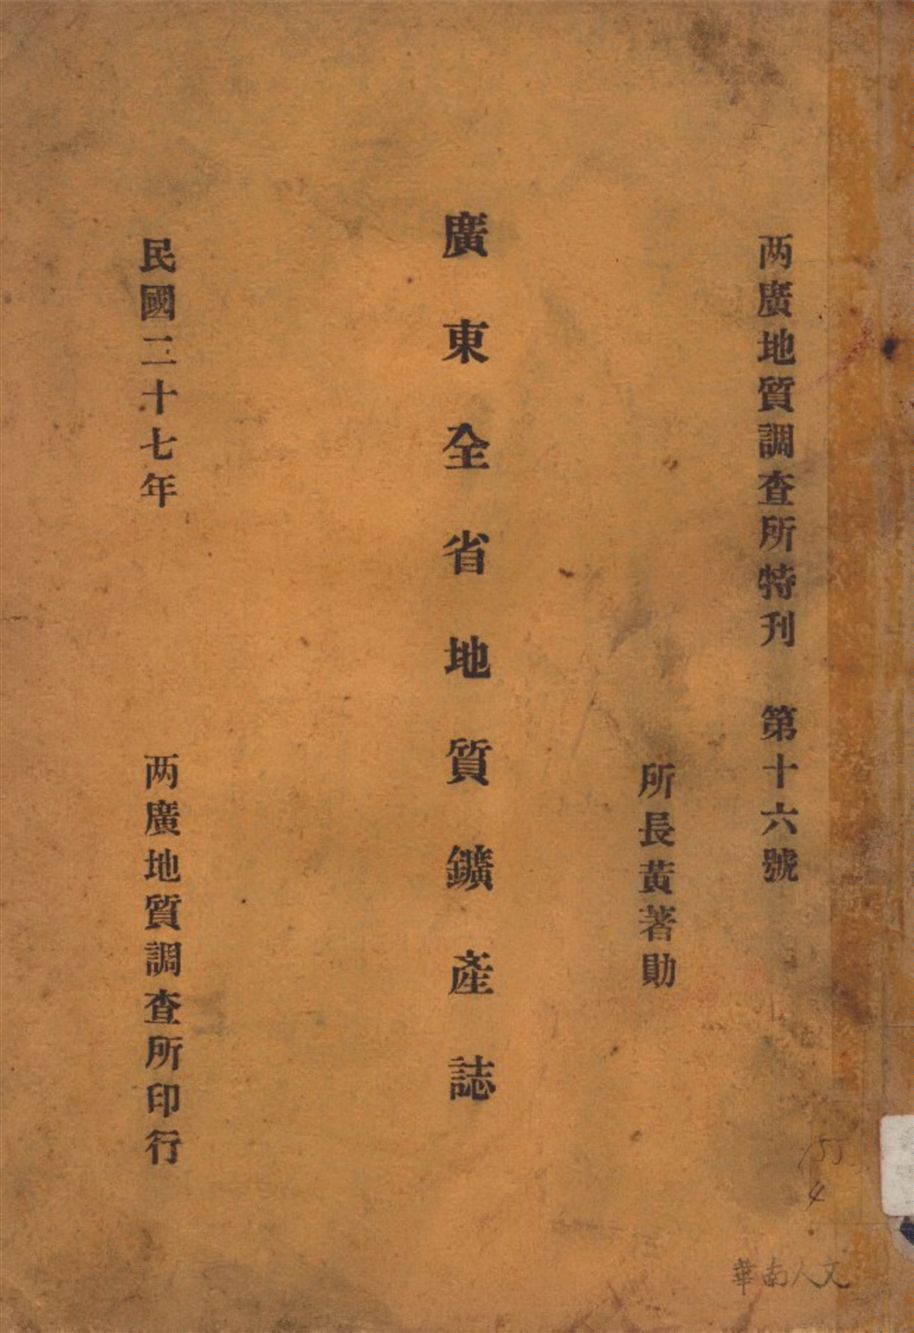 两廣地質調查所特刊　第十六號
所長黃著勛
廣東全省地質鑛產誌
民國二十七年
两廣地質調查所印行
華南人文